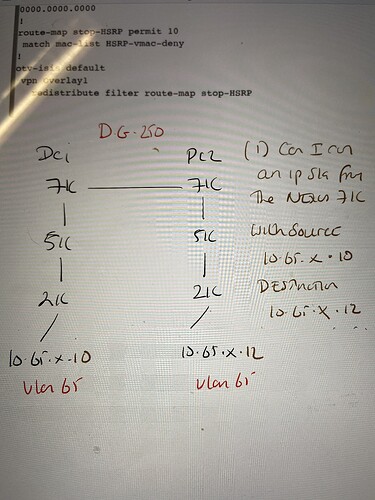 0000.0000.0000
!
route-map stop-HSRP permit 10
match mac-list HSRP-vmac-deny
!
otv-isis default
vpn overlay1
redistribute filter route-map stop-HSRP
DG.250
DC1 DC2
7K 7K
5K 5K
2K 2K
10.65.x.10 10.65.x.12
Vlan 65 Vlan 65
(1) Can I run
an ip sla from
the Nexus 7K
with source
10.65.x.10
Destination
10.65.x.12